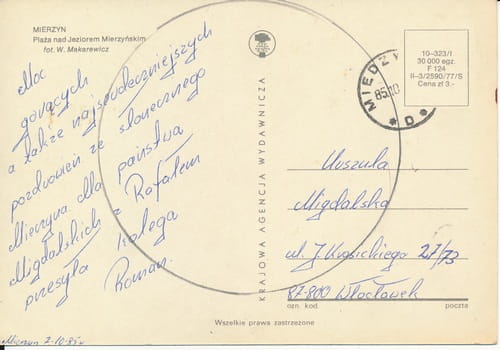 MIERZYN
Plaża nad Jeziorem Mierzyńskim
fot. W. Makarewicz
Moc
gorących
a także najserdeczniejszych
pozdrowień ze słonecznego
Mierzyna dla państwa
Migdalskich z Rafałem
przesyła kolega
Roman.
Mierzyn 2.10.85r
KRAJOWA AGENCJA WYDAWNICZA
10–323/I
30 000 egz.
F 124
II–3/2590/77/S
Cena zł 3.–
MIEDZY
85.10
D
Urszula
Migdalska
ul. J. Krasickiego 27/73
87-800 Włocławek
ozn. kod. poczta
Wszelkie prawa zastrzeżone